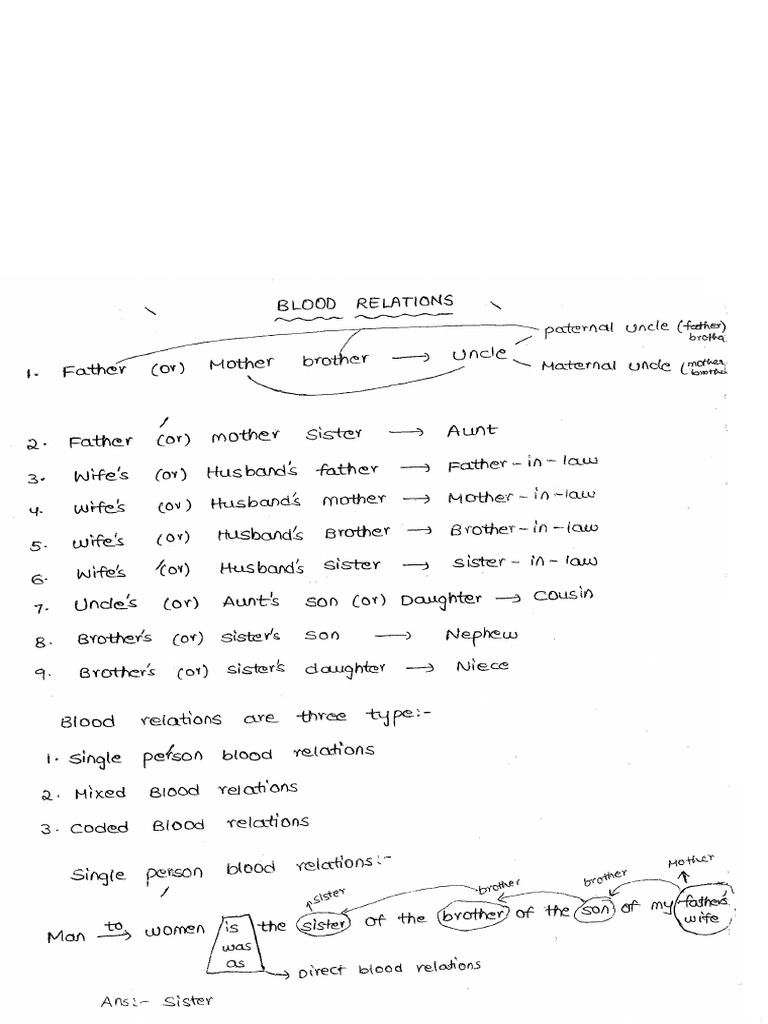 BLOOD RELATIONS
paternal uncle (father)
brothe
1. Father (or) Mother brother → Uncle
Maternal uncle (mother
brothe
2. Father (or) mother sister → Aunt
3. Wife's (or) Husband's father → Father-in-law
4. Wife's (or) Husband's mother → Mother-in-law
5. Wife's (or) Husband's Brother → Brother-in-law
6. Wife's (or) Husband's sister → sister-in-law
7. Uncle's (or) Aunt's son (or) Daughter → cousin
8. Brother's (or) sister's son → Nephew
9. Brother's (or) sister's daughter → Niece
Blood relations are three type:-
1. Single person blood relations
2. Mixed Blood relations
3. Coded Blood relations
Single person blood relations:-
sister brother brother Mother
Man to→ women is the sister of the brother of the son of my father's
was wife
as → Direct blood relations
Ans:- Sister